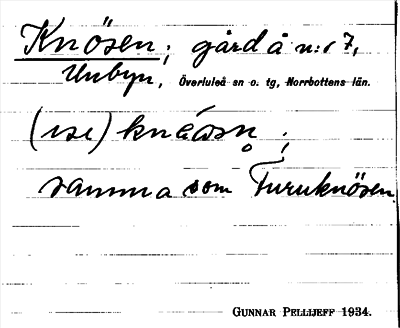 Knösen; gård å n:r 7,
Unbyn, Överluleå sn o. tg, Norrbottens län.
samma som Furuknösen.
GUNNAR PELLIJEFF 1934.